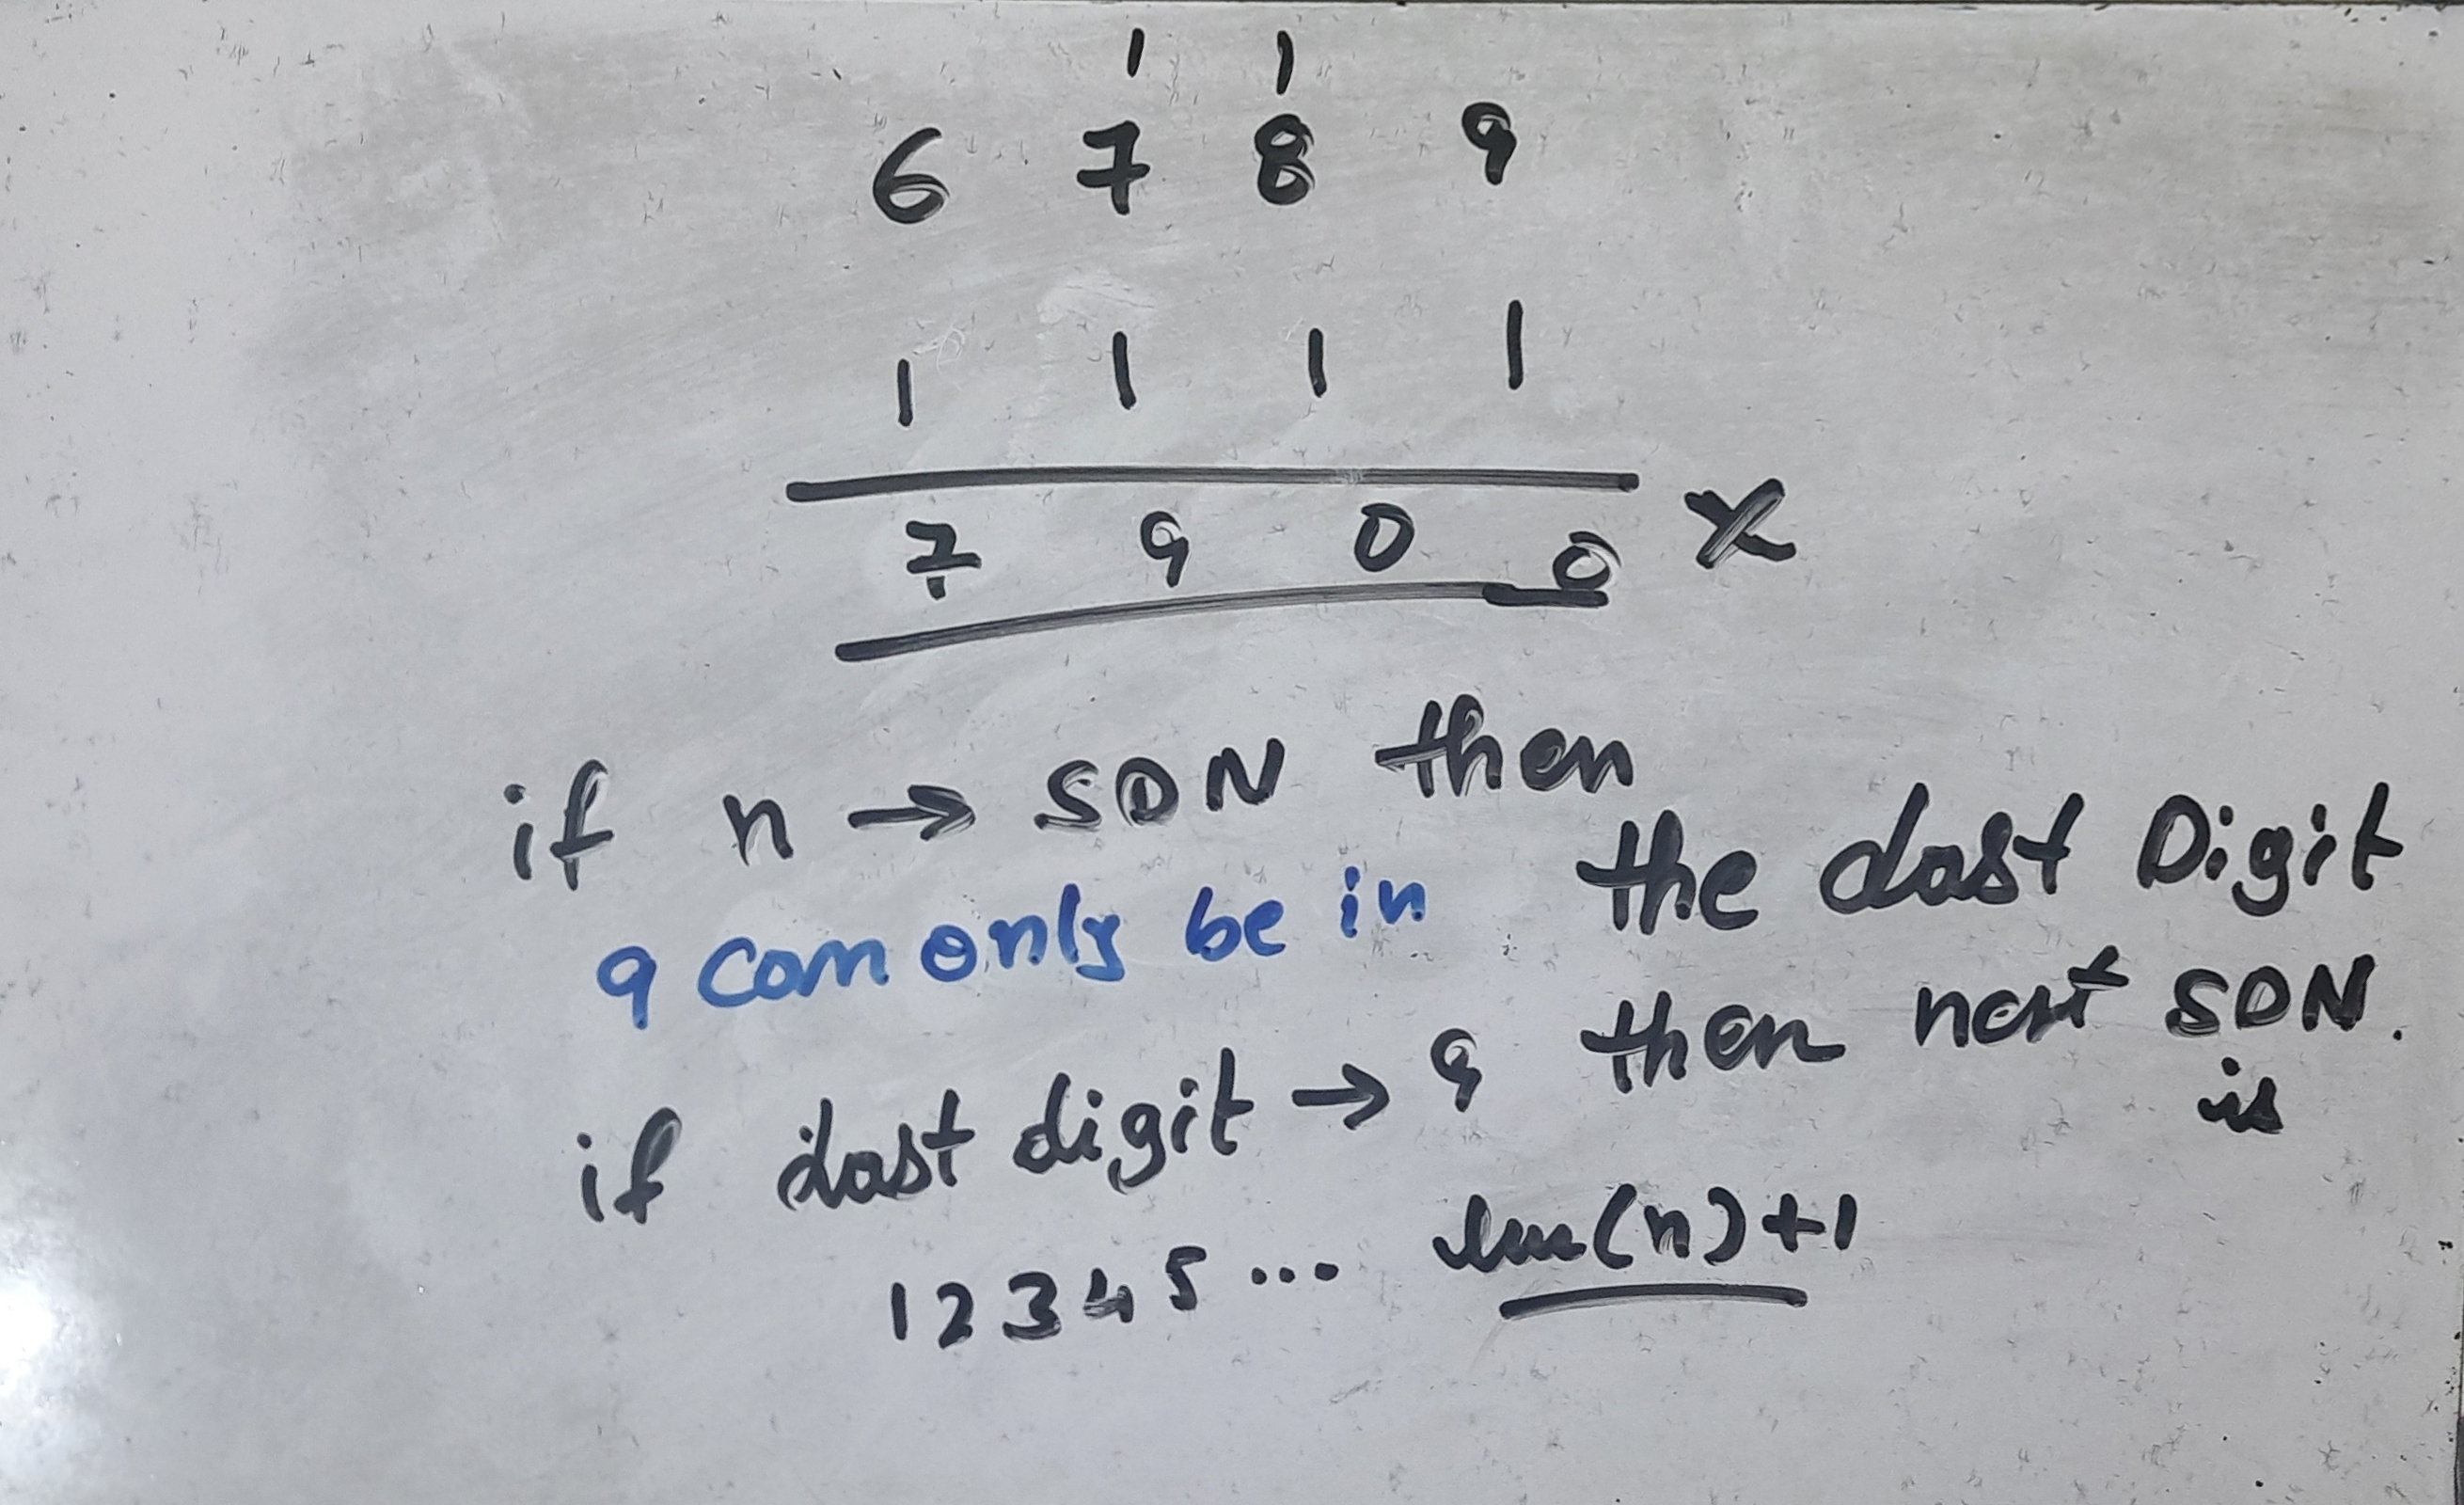 1 1
6 7 8 9
1 1 1 1
7 9 0 0 X
if n → SDN then
9 can only be in the last Digit
if last digit → 9 then next SDN.
is
1 2 3 4 5 ... len(n)+1